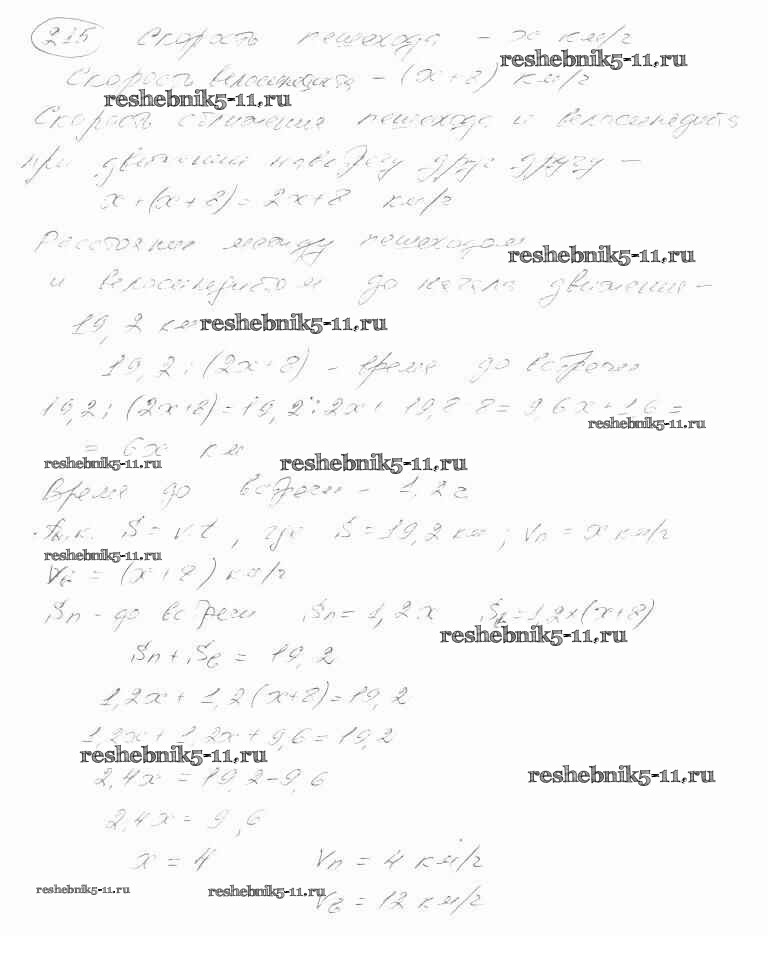 215 Скорость пешехода - x км/г
reshebnik5-11.ru
Скорость велосипедиста - (x+8) км/г
reshebnik5-11.ru
Скорость сближения пешехода и велосипедиста
при движении навстречу друг другу -
x+(x+8)=2x+8 км/г
Расстояние между пешеходом
reshebnik5-11.ru
и велосипедистом до начала движения -
19,2 км
reshebnik5-11.ru
19,2:(2x+8) - время до встречи
19,2:(2x+8)=19,2:2x+19,8·8=9,6x+1,6=
reshebnik5-11.ru
= 6x км
reshebnik5-11.ru reshebnik5-11.ru
Время до встречи - 1,2 г
т.к. S=v.t, где S=19,2 км; Vп = x км/г
reshebnik5-11.ru
Vв = (x+8) км/г
Sп - до встречи Sп=1,2x Sв=1,2×(x+8)
reshebnik5-11.ru
Sп+Sв = 19,2
1,2x+1,2(x+8)=19,2
1,2x+1,2x+9,6=19,2
reshebnik5-11.ru
2,4x=19,2-9,6
reshebnik5-11.ru
2,4x=9,6
x=4 Vп = 4 км/г
reshebnik5-11.ru reshebnik5-11.ru
Vв = 12 км/г